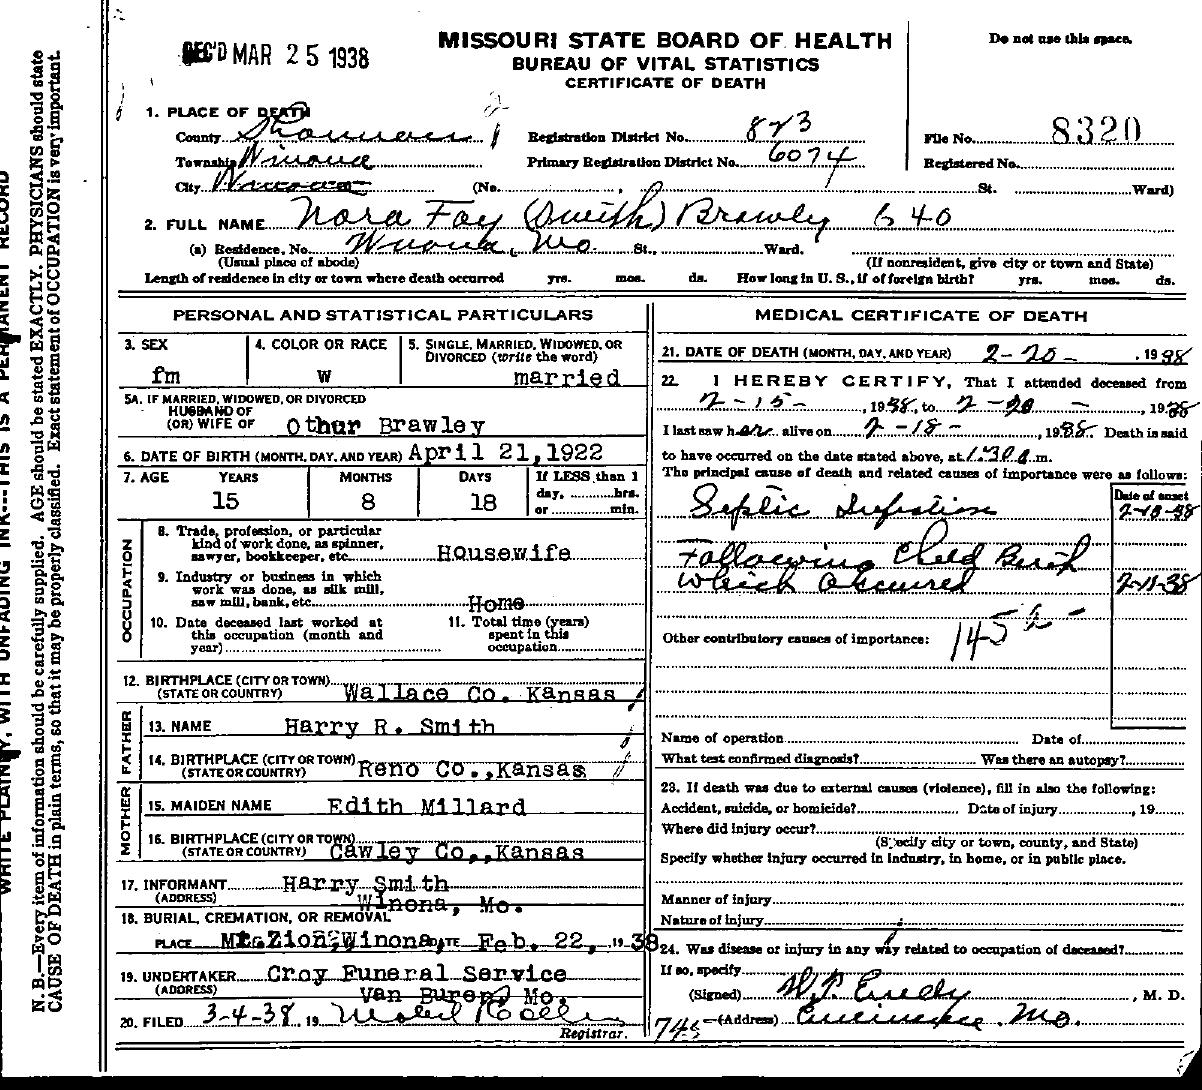 REC'D MAR 25 1938
MISSOURI STATE BOARD OF HEALTH
BUREAU OF VITAL STATISTICS
CERTIFICATE OF DEATH
Do not use this space.
1. PLACE OF DEATH
County Shannon Registration District No. 823 File No. 8320
Township Winona Primary Registration District No. 6074 Registered No.
City Winona (No. , St. Ward)
2. FULL NAME Nora Fay (Smith) Brawly 640
(a) Residence, No. Winona, Mo. St., Ward.
(Usual place of abode) (If nonresident, give city or town and State)
Length of residence in city or town where death occurred yrs. mos. ds. How long in U. S., if of foreign birth? yrs. mos. ds.
PERSONAL AND STATISTICAL PARTICULARS
3. SEX fm
4. COLOR OR RACE W
5. SINGLE, MARRIED, WIDOWED, OR DIVORCED (write the word) married
5A. IF MARRIED, WIDOWED, OR DIVORCED
HUSBAND OF
(OR) WIFE OF Othur Brawley
6. DATE OF BIRTH (MONTH, DAY, AND YEAR) April 21, 1922
7. AGE YEARS MONTHS DAYS If LESS than 1
15 8 18 day, hrs.
or min.
OCCUPATION
8. Trade, profession, or particular
kind of work done, as spinner,
sawyer, bookkeeper, etc. Housewife
9. Industry or business in which
work was done, as silk mill,
saw mill, bank, etc. Home
10. Date deceased last worked at
this occupation (month and
year)
11. Total time (years)
spent in this
occupation
12. BIRTHPLACE (CITY OR TOWN)
(STATE OR COUNTRY) Wallace Co. Kansas
FATHER
13. NAME Harry R. Smith
14. BIRTHPLACE (CITY OR TOWN)
(STATE OR COUNTRY) Reno Co., Kansas
MOTHER
15. MAIDEN NAME Edith Millard
16. BIRTHPLACE (CITY OR TOWN)
(STATE OR COUNTRY) Cawley Co., Kansas
17. INFORMANT Harry Smith
(ADDRESS) Winona, Mo.
18. BURIAL, CREMATION, OR REMOVAL
PLACE Mt. Zion, Winona DATE Feb. 22, 1938
19. UNDERTAKER Croy Funeral Service
(ADDRESS) Van Buren, Mo.
20. FILED 3-4-38, 19
Registrar.
MEDICAL CERTIFICATE OF DEATH
21. DATE OF DEATH (MONTH, DAY, AND YEAR) 2-20- , 1938
22. I HEREBY CERTIFY, That I attended deceased from
2-15- , 1938, to 2-20- , 1938
I last saw her alive on 2-18- , 1938. Death is said
to have occurred on the date stated above, at 1:30 a.m.
The principal cause of death and related causes of importance were as follows:
Date of onset
Septic Infection 2-18-38
Following Child Birth
which occurred 2-11-38
Other contributory causes of importance: 145
Name of operation Date of
What test confirmed diagnosis? Was there an autopsy?
23. If death was due to external causes (violence), fill in also the following:
Accident, suicide, or homicide? Date of injury , 19
Where did injury occur?
(Specify city or town, county, and State)
Specify whether injury occurred in industry, in home, or in public place.
Manner of injury
Nature of injury
24. Was disease or injury in any way related to occupation of deceased?
If so, specify
(Signed) , M. D.
(Address) Eminence, Mo.
WRITE PLAINLY, WITH UNFADING INK---THIS IS A PERMANENT RECORD
N. B.—Every item of information should be carefully supplied. AGE should be stated EXACTLY. PHYSICIANS should state
CAUSE OF DEATH in plain terms, so that it may be properly classified. Exact statement of OCCUPATION is very important.